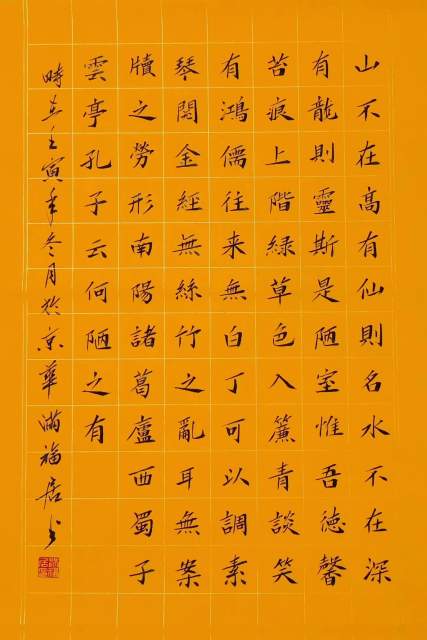 山不在高有仙則名水不在深
有龍則靈斯是陋室惟吾德馨
苔痕上階緑草色入簾青談笑
有鴻儒往来無白丁可以調素
琴閱金經無絲竹之亂耳無案
牘之勞形南陽諸葛廬西蜀子
雲亭孔子云何陋之有
時在壬寅年冬月於京華滿福居书